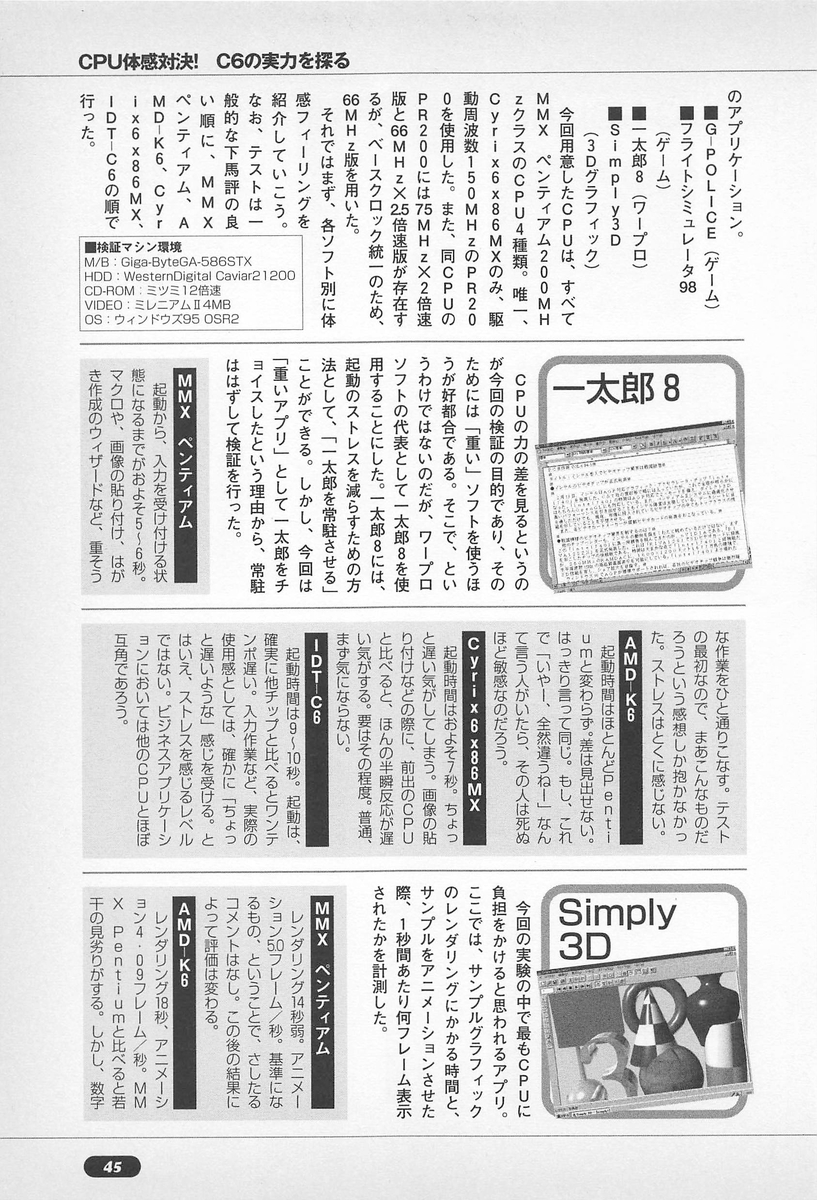 CPU体感対決! C6の実力を探る
のアプリケーション。
■G-POLICE(ゲーム)
■フライトシミュレータ98
(ゲーム)
■一太郎8(ワープロ)
■Simply3D
(3Dグラフィック)
今回用意したCPUは、すべて
MMX ペンティアム200MH
zクラスのCPU4種類。唯一、
Cyrix6x86MXのみ、駆
動周波数150MHzのPR20
0を使用した。また、同CPUの
PR200には75MHz×2倍速
版と66MHz×2.5倍速版が存在す
るが、ベースクロック統一のため、
66MHz版を用いた。
それではまず、各ソフト別に体
感フィーリングを
紹介していこう。
なお、テストは一
般的な下馬評の良
い順に、MMX
ペンティアム、A
MD-K6、Cyr
ix6x86MX、
IDT-C6の順で
行った。
■検証マシン環境
M/B:Giga-ByteGA-586STX
HDD:WesternDigital Caviar21200
CD-ROM:ミツミ12倍速
VIDEO:ミレニアムⅡ4MB
OS:ウィンドウズ95 OSR2
一太郎8
CPUの力の差を見るというの
が今回の検証の目的であり、その
ためには「重い」ソフトを使うほ
うが好都合である。そこで、とい
うわけではないのだが、ワープロ
ソフトの代表として一太郎8を使
用することにした。一太郎8には、
起動のストレスを減らすための方
法として、「一太郎を常駐させる」
ことができる。しかし、今回は
「重いアプリ」として一太郎をチ
ョイスしたという理由から、常駐
ははずして検証を行った。
MMX ペンティアム
起動から、入力を受け付ける状
態になるまでがおよそ5〜6秒。
マクロや、画像の貼り付け、はが
き作成のウィザードなど、重そう
な作業をひと通りこなす。テスト
の最初なので、まあこんなものだ
ろうという感想しか抱かなかっ
た。ストレスはとくに感じない。
AMD-K6
起動時間はほとんどPenti
umと変わらず。差は見出せない。
はっきり言って同じ。もし、これ
で「いやー、全然違うねー」なん
て言う人がいたら、その人は死ぬ
ほど敏感なのだろう。
Cyrix6x86MX
起動時間はおよそ7秒。ちょっ
と遅い気がしてしまう。画像の貼
り付けなどの際に、前出のCPU
と比べると、ほんの半瞬反応が遅
い気がする。要はその程度。普通、
まず気にならない。
IDT-C6
起動時間は9〜10秒。起動は、
確実に他チップと比べるとワンテ
ンポ遅い。入力作業など、実際の
使用感としては、確かに「ちょっ
と遅いような」感じを受ける。と
はいえ、ストレスを感じるレベル
ではない。ビジネスアプリケーシ
ョンにおいては他のCPUとほぼ
互角であろう。
Simply
3D
今回の実験の中で最もCPUに
負担をかけると思われるアプリ。
ここでは、サンプルグラフィック
のレンダリングにかかる時間と、
サンプルをアニメーションさせた
際、1秒間あたり何フレーム表示
されたかを計測した。
MMX ペンティアム
レンダリング14秒弱。アニメー
ション5.0フレーム/秒。基準にな
るもの、ということで、さしたる
コメントはなし。この後の結果に
よって評価は変わる。
AMD-K6
レンダリング18秒、アニメーシ
ョン4.09フレーム/秒。MM
X Pentiumと比べると若
干の見劣りがする。しかし、数字
45